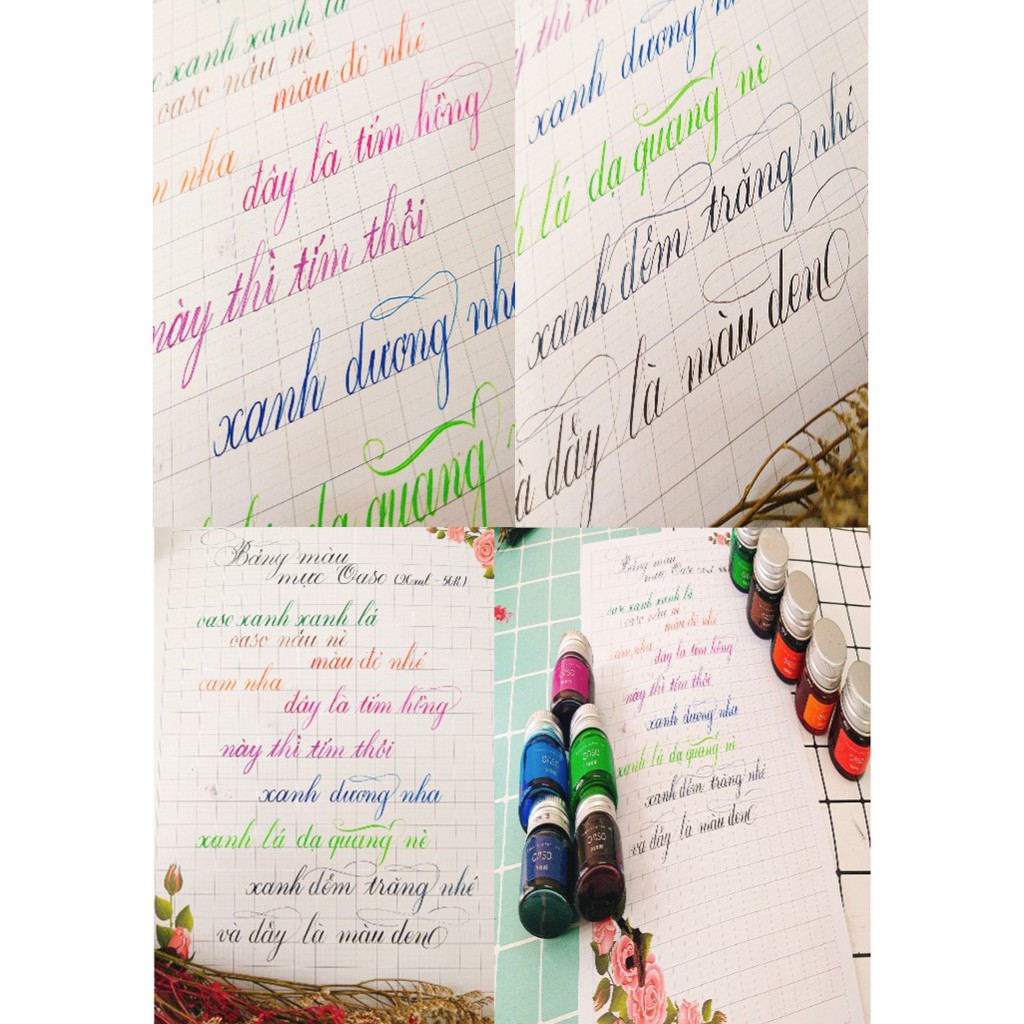 oaso xanh xanh lá
oaso nâu nè
màu đỏ nhé
m nha
đây là tím hồng
này thì tím thôi
xanh dương nha
lá dạ quang
này thì tím
xanh dương
lá dạ quang nè
xanh đêm trăng nhé
và đây là màu đen
Bảng màu
mực Oaso (20ml - 50k)
oaso xanh xanh lá
oaso nâu nè
màu đỏ nhé
cam nha
đây là tím hồng
này thì tím thôi
xanh dương nha
xanh lá dạ quang nè
xanh đêm trăng nhé
và đây là màu đen
Bảng màu
mực Oaso
oaso xanh xanh lá
oaso nâu nè
màu đỏ nhé
cam nha
đây là tím hồng
này thì tím thôi
xanh dương nha
xanh lá dạ quang nè
xanh đêm trăng nhé
và đây là màu đen
OASO
OASO
OASO
OASO
OASO